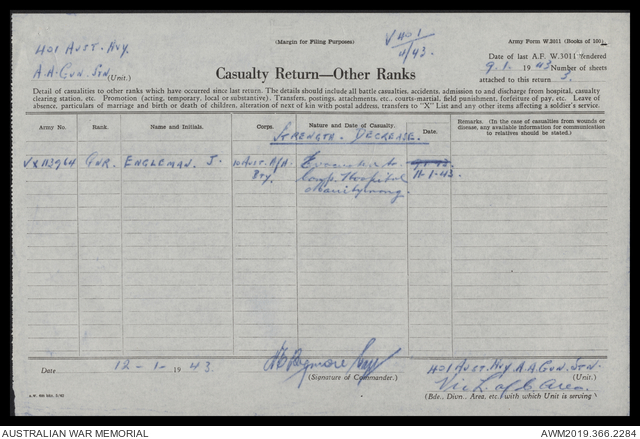 401 AUST. HVY.
A.A. GUN. STN. (Unit.)
(Margin for Filing Purposes)
V 401/4/43.
Army Form W.3011 (Books of 100)
Date of last A.F. W.3011 rendered
9.1. 1943 Number of sheets
attached to this return 3.
Casualty Return—Other Ranks
Detail of casualties to other ranks which have occurred since last return. The details should include all battle casualties, accidents, admission to and discharge from hospital, casualty
clearing station, etc. Promotion (acting, temporary, local or substantive). Transfers, postings, attachments, etc., courts-martial, field punishment, forfeiture of pay, etc. Leave of
absence, particulars of marriage and birth or death of children, alteration of next of kin with postal address, transfers to "X" List and any other items affecting a soldier's service.
Army No.
Rank.
Name and Initials.
Corps.
Nature and Date of Casualty.
Date.
Remarks. (In the case of casualties from wounds or
disease, any available information for communication
to relatives should be stated.)
STRENGTH. DECREASE.
VX113964 GNR. ENGLEMAN. J. 10 AUST. A/A Evacuated to
Bty. Camp Hospital 11-1-43.
Maribyrnong.
Date 12-1-1943.
(Signature of Commander.)
401 AUST. HVY. A.A. GUN. STN.
(Unit.)
Vic L of C Area.
(Bde., Divn., Area, etc., with which Unit is serving
AUSTRALIAN WAR MEMORIAL
AWM2019.366.2284